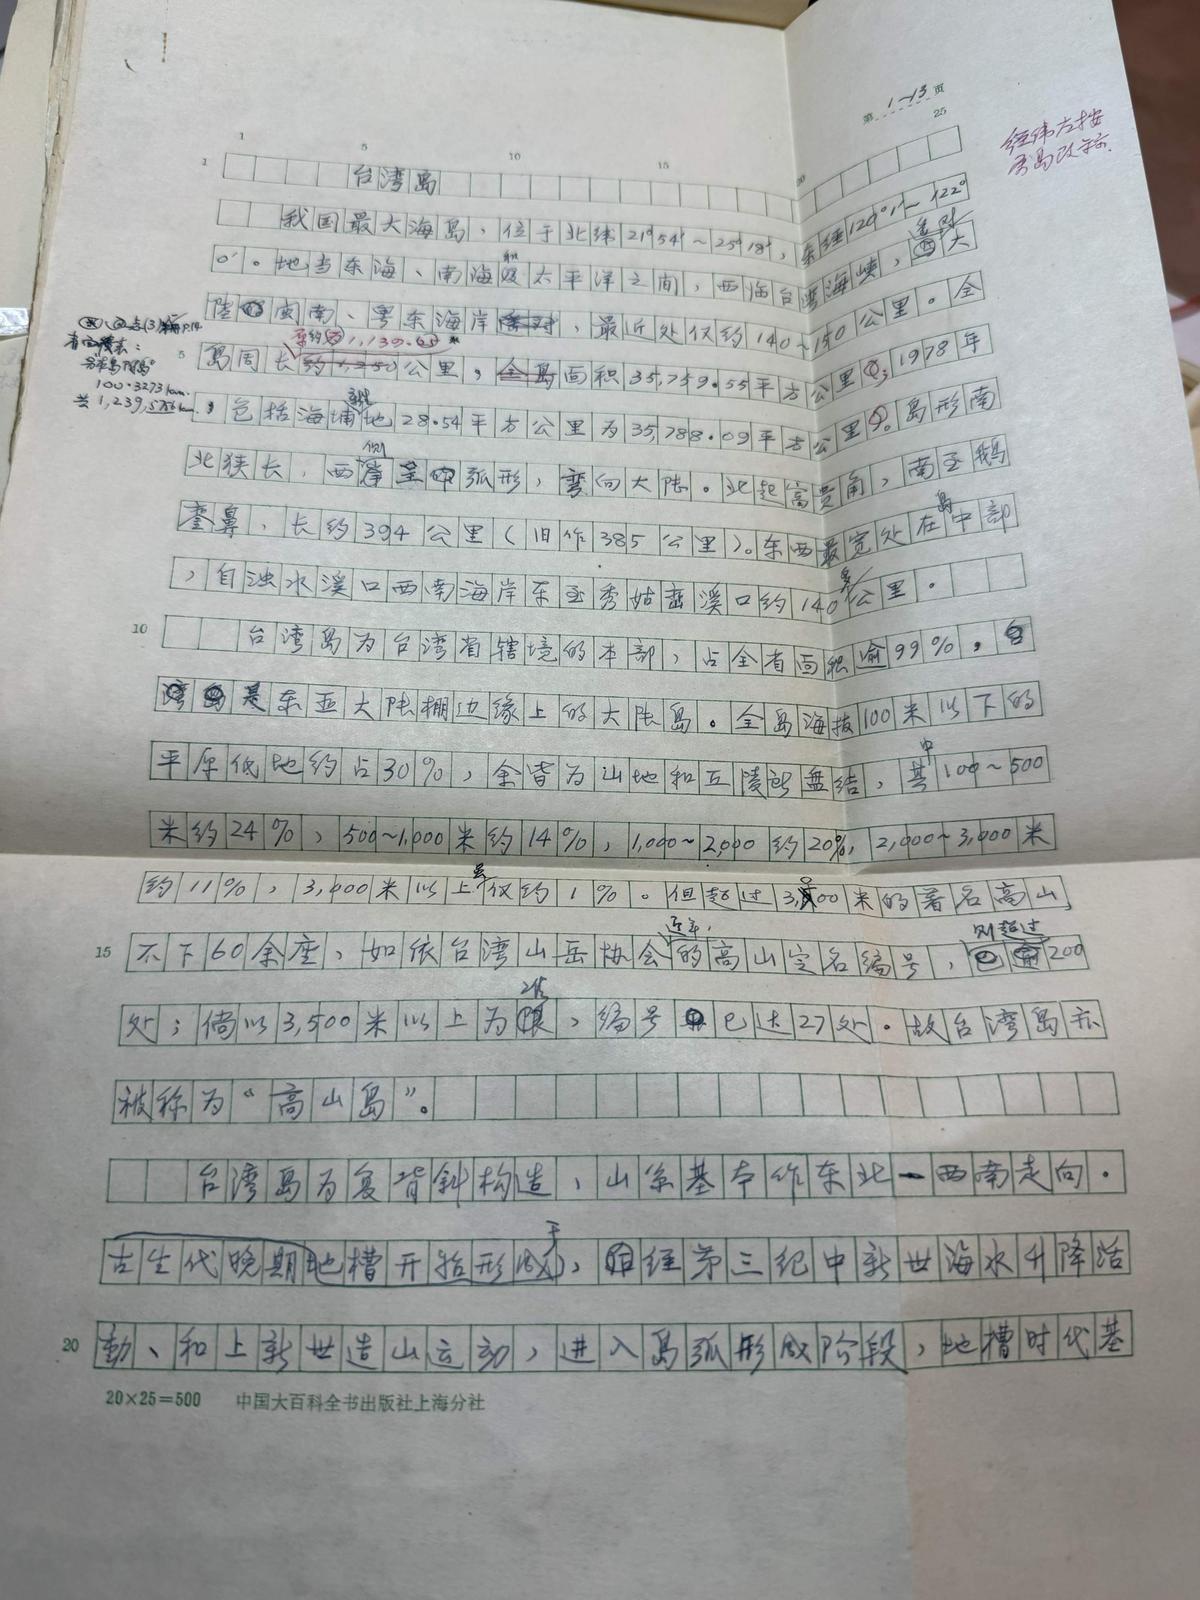 第 1-13 页
1 5 10 15 20 25
1 台湾岛
我国最大海岛，位于北纬21°54′～25°18′，东经120°1′～122°
0′。地当东海、南海和太平洋之间，西临台湾海峡，遥对大
陆闽南、粤东海岸，最近处仅约140～150公里。全
1,139.65
5 岛周长约1,250公里，全岛面积35,759.55平方公里；1978年
，包括海埔新生地28.54平方公里为35,788.09平方公里。岛形南
北狭长，西侧呈弧形，弯向大陆。北起富贵角，南至鹅
銮鼻，长约394公里（旧作385公里）。东西最宽处在岛中部
，自浊水溪口西南海岸东至秀姑峦溪口约140公里。
10 台湾岛为台湾省辖境的本部，占全省面积逾99%，
是东亚大陆棚边缘上的大陆岛。全岛海拔100米以下的
平原低地约占30%，余皆为山地和丘陵所盘结，其中100～500
米约24%，500～1,000米约14%，1,000～2,000约20%，2,000～3,000米
约11%，3,000米以上仅约1%。但超过3,000米的著名高山
15 不下60余座，如依台湾山岳协会近年的高山定名编号，则超过200
处；倘以3,500米以上为准，编号已达27处。故台湾岛亦
被称为“高山岛”。
台湾岛为复背斜构造，山系基本作东北—西南走向。
古生代晚期地槽开始形成，经第三纪中新世海水升降活
20 动、和上新世造山运动，进入岛弧形成阶段，地槽时代基
20×25=500 中国大百科全书出版社上海分社
100.3273km.
共1,239.576km.